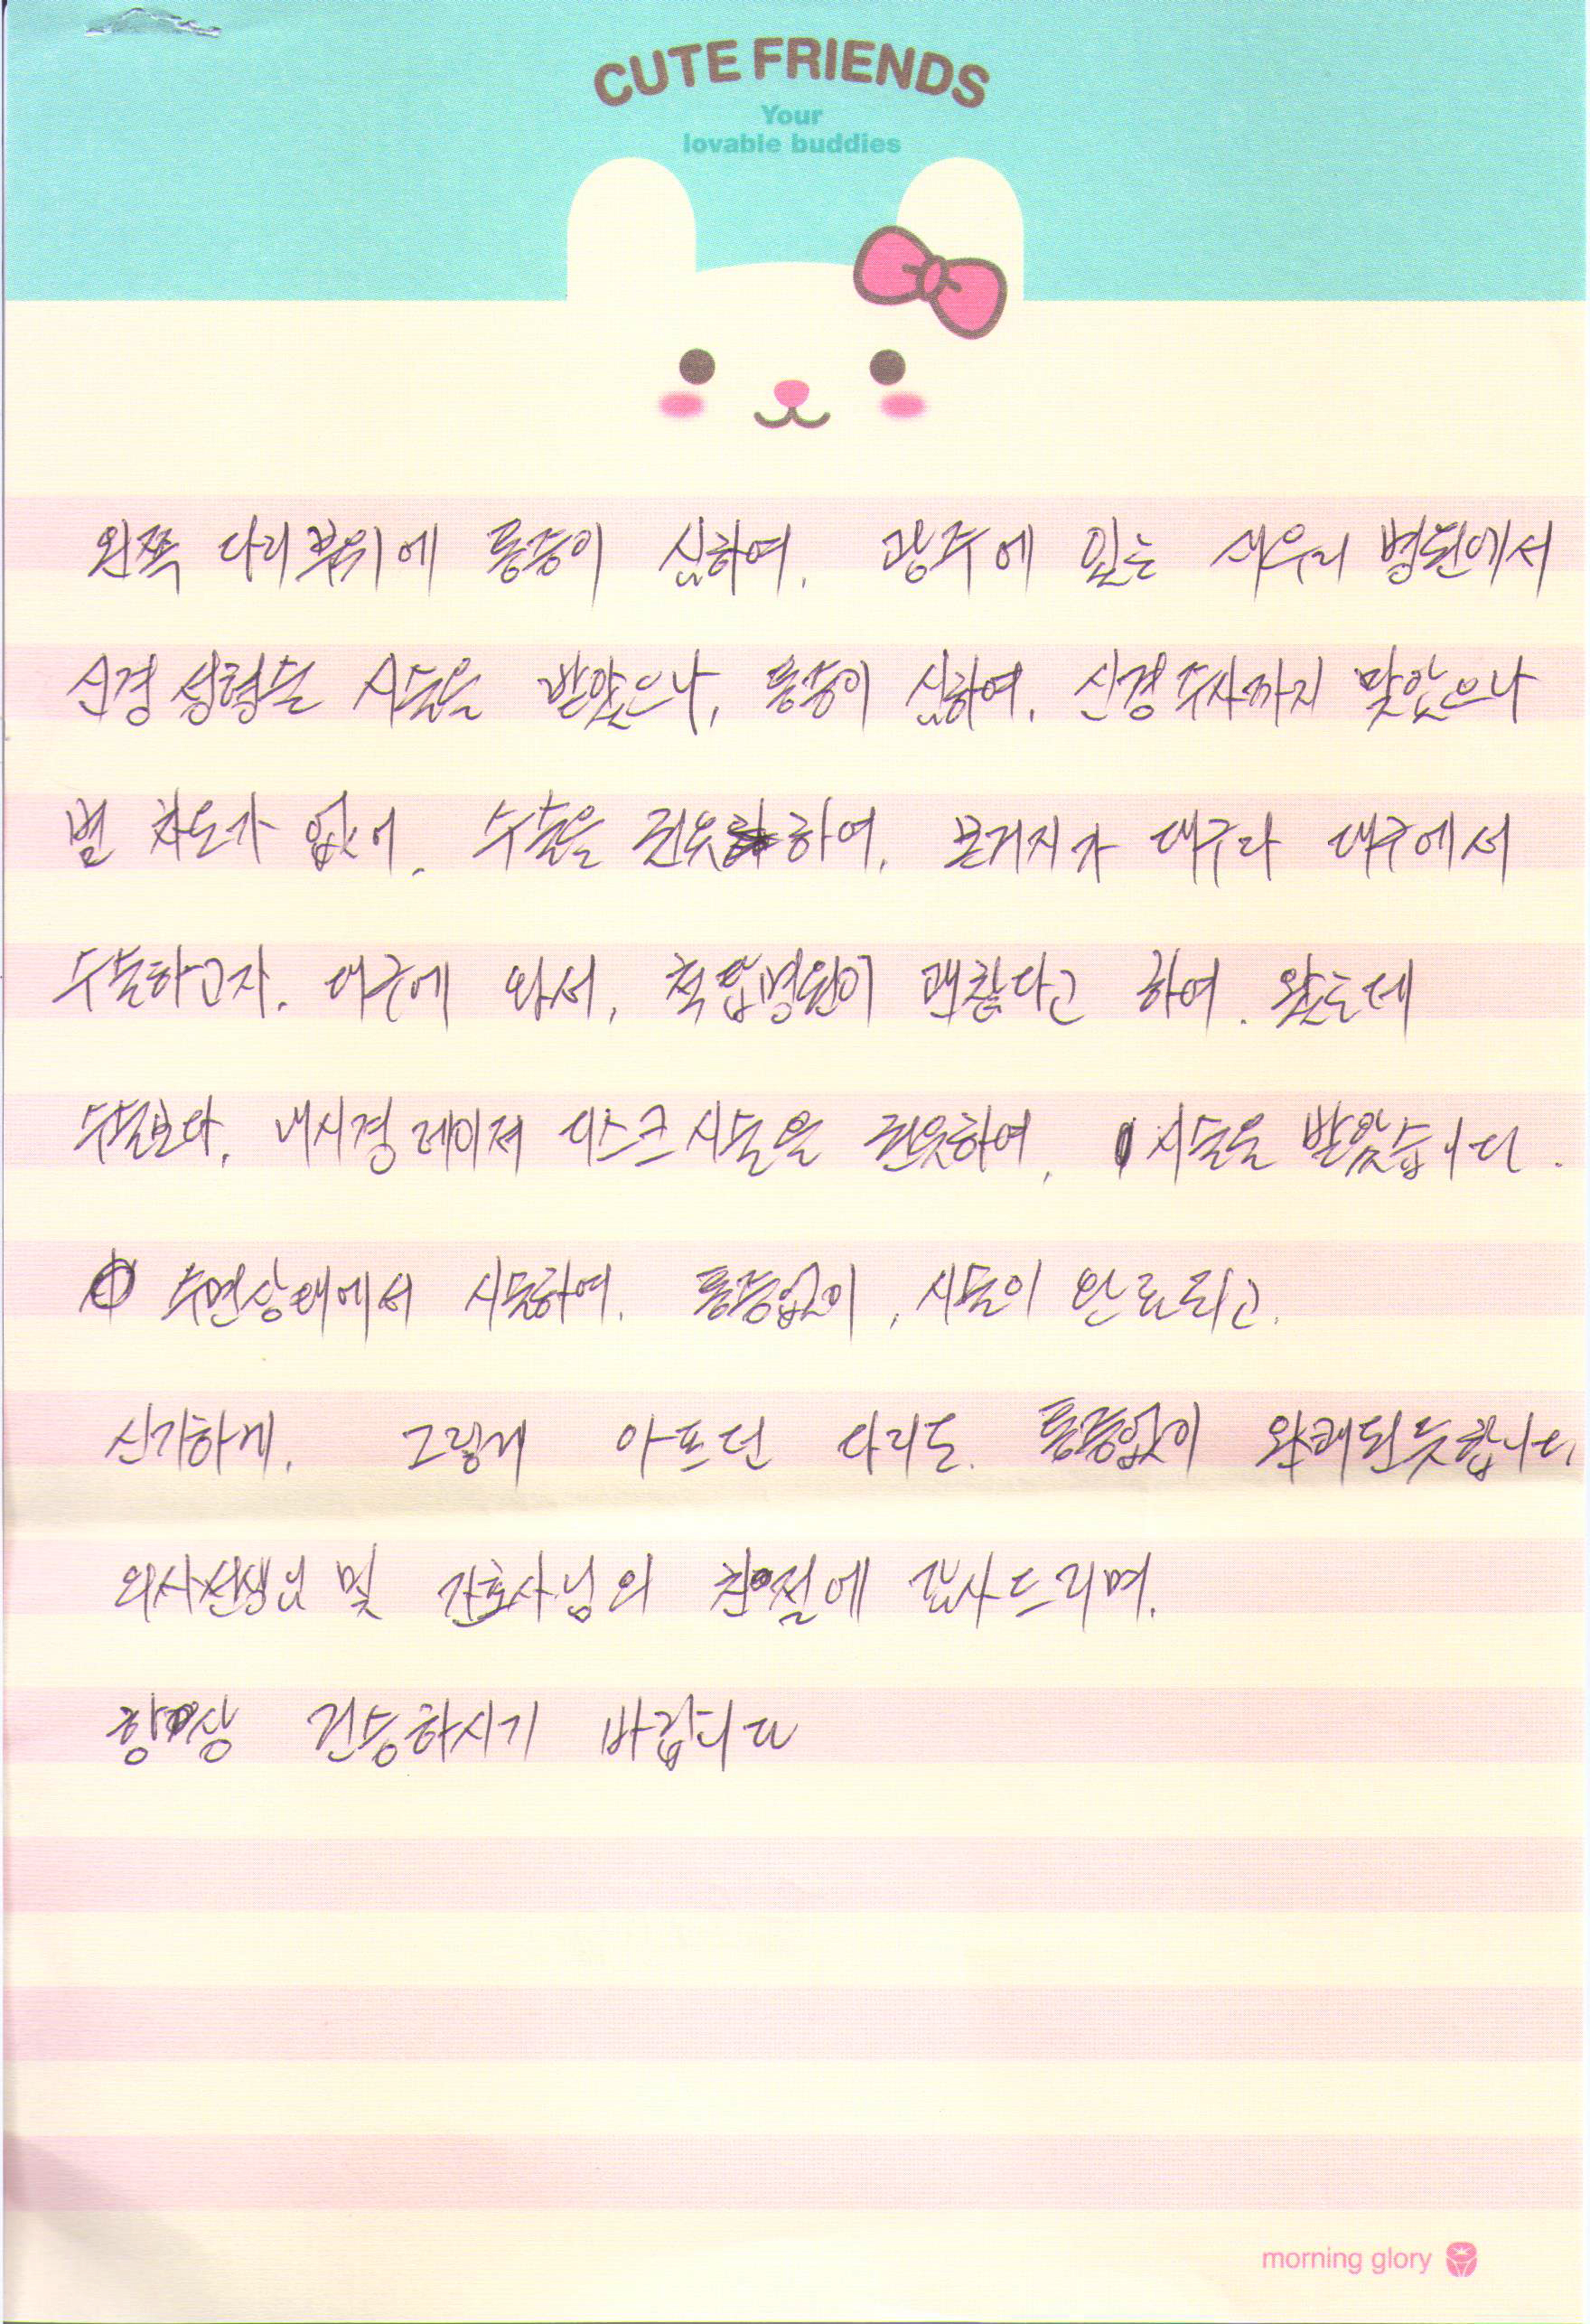 CUTE FRIENDS
Your
lovable buddies
왼쪽 다리부위에 통증이 심하여. 광주에 있는 새우리 병원에서
신경성형술 시술을 받았으나, 통증이 심하여. 신경주사까지 맞았으나
별 차도가 없어. 수술을 권유하여. 본거지가 대구라 대구에서
수술하고자. 대구에 와서, 척탑병원이 괜찮다고 하여. 왔는데
수술보다. 내시경 레이저 디스크 시술을 권유하여. 시술을 받았습니다.
수면상태에서 시술하여. 통증없이, 시술이 완료되고.
신기하게. 그렇게 아프던 다리도. 통증없이 완쾌된듯합니다
의사선생님 및 간호사님의 친절에 감사드리며.
항상 건승하시기 바랍니다
morning glory